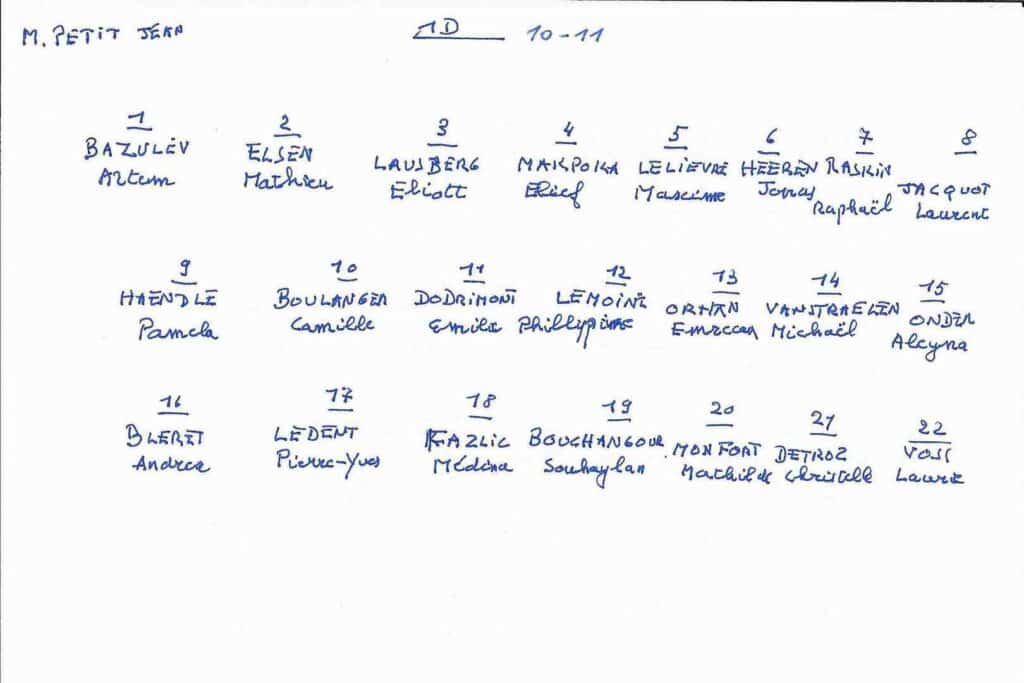 M. PETIT JEAN 1D 10-11
1 2 3 4 5 6 7 8
BAZULEV ELSEN LAUSBERG MAKPOKA LELIEVRE HEEREN RASKIN JACQUOT
Artem Mathieu Eliott Elief Maxime Jonas Raphaël Laurent
9 10 11 12 13 14 15
HAENDLE BOULANGER DODRIMONT LEMOINE ORHAN VANSTRAELEN ONDER
Pamela Camille Emilie Phillypine Emrecan Michaël Alcyna
16 17 18 19 20 21 22
BLERET LEDENT FAZLIC BOUCHANGOUR MONFORT DETROZ VOSS
Andrea Pierre-Yves Médina Souhaylan Mathilde Christelle Laurie